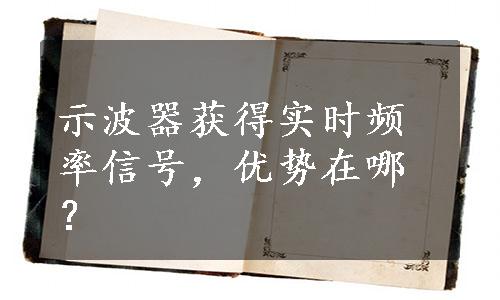 示波器获得实时频
率信号，优势在哪
？